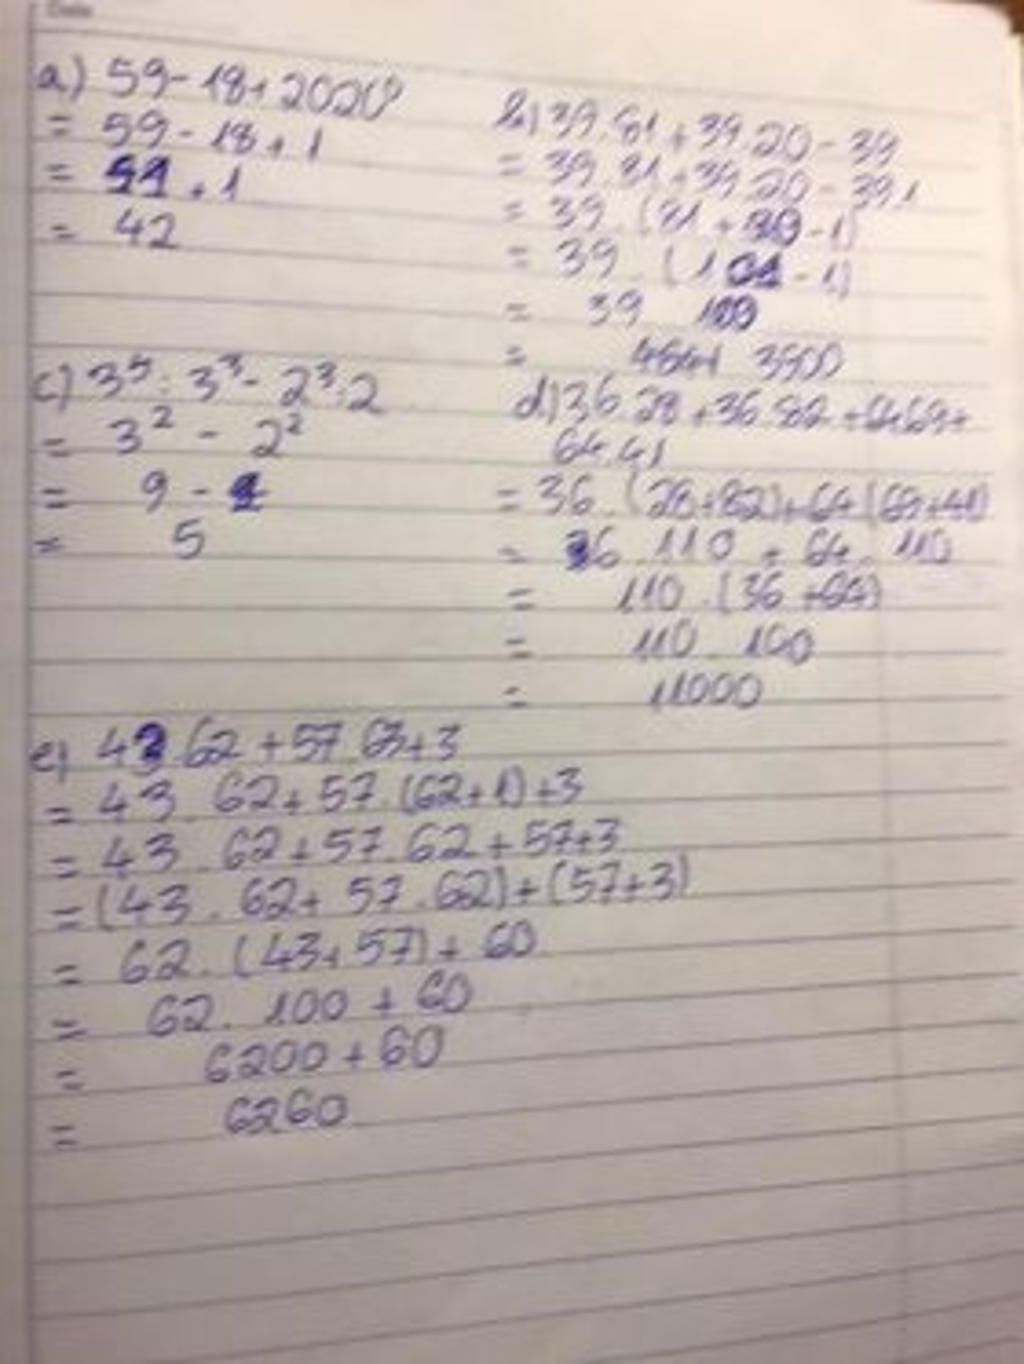 a) 59 - 18 + 2020⁰
= 59 - 18 + 1
= 41 + 1
= 42
b) 39.81 + 39.20 - 39
= 39.81 + 39.20 - 39.1
= 39.(81 + 20 - 1)
= 39.(101 - 1)
= 39 100
= 3900
c) 3⁵ : 3³ - 2³ : 2
= 3² - 2²
= 9 - 4
= 5
d) 36.28 + 36.82 + 64.69 +
64.41
= 36.(28+82) + 64(69+41)
= 36.110 + 64.110
= 110.(36 + 64)
= 110.100
= 11000
e) 43.62 + 57.63 + 3
= 43.62 + 57.(62+1) + 3
= 43.62 + 57.62 + 57+3
= (43.62 + 57.62) + (57+3)
= 62.(43+57) + 60
= 62.100 + 60
= 6200 + 60
= 6260